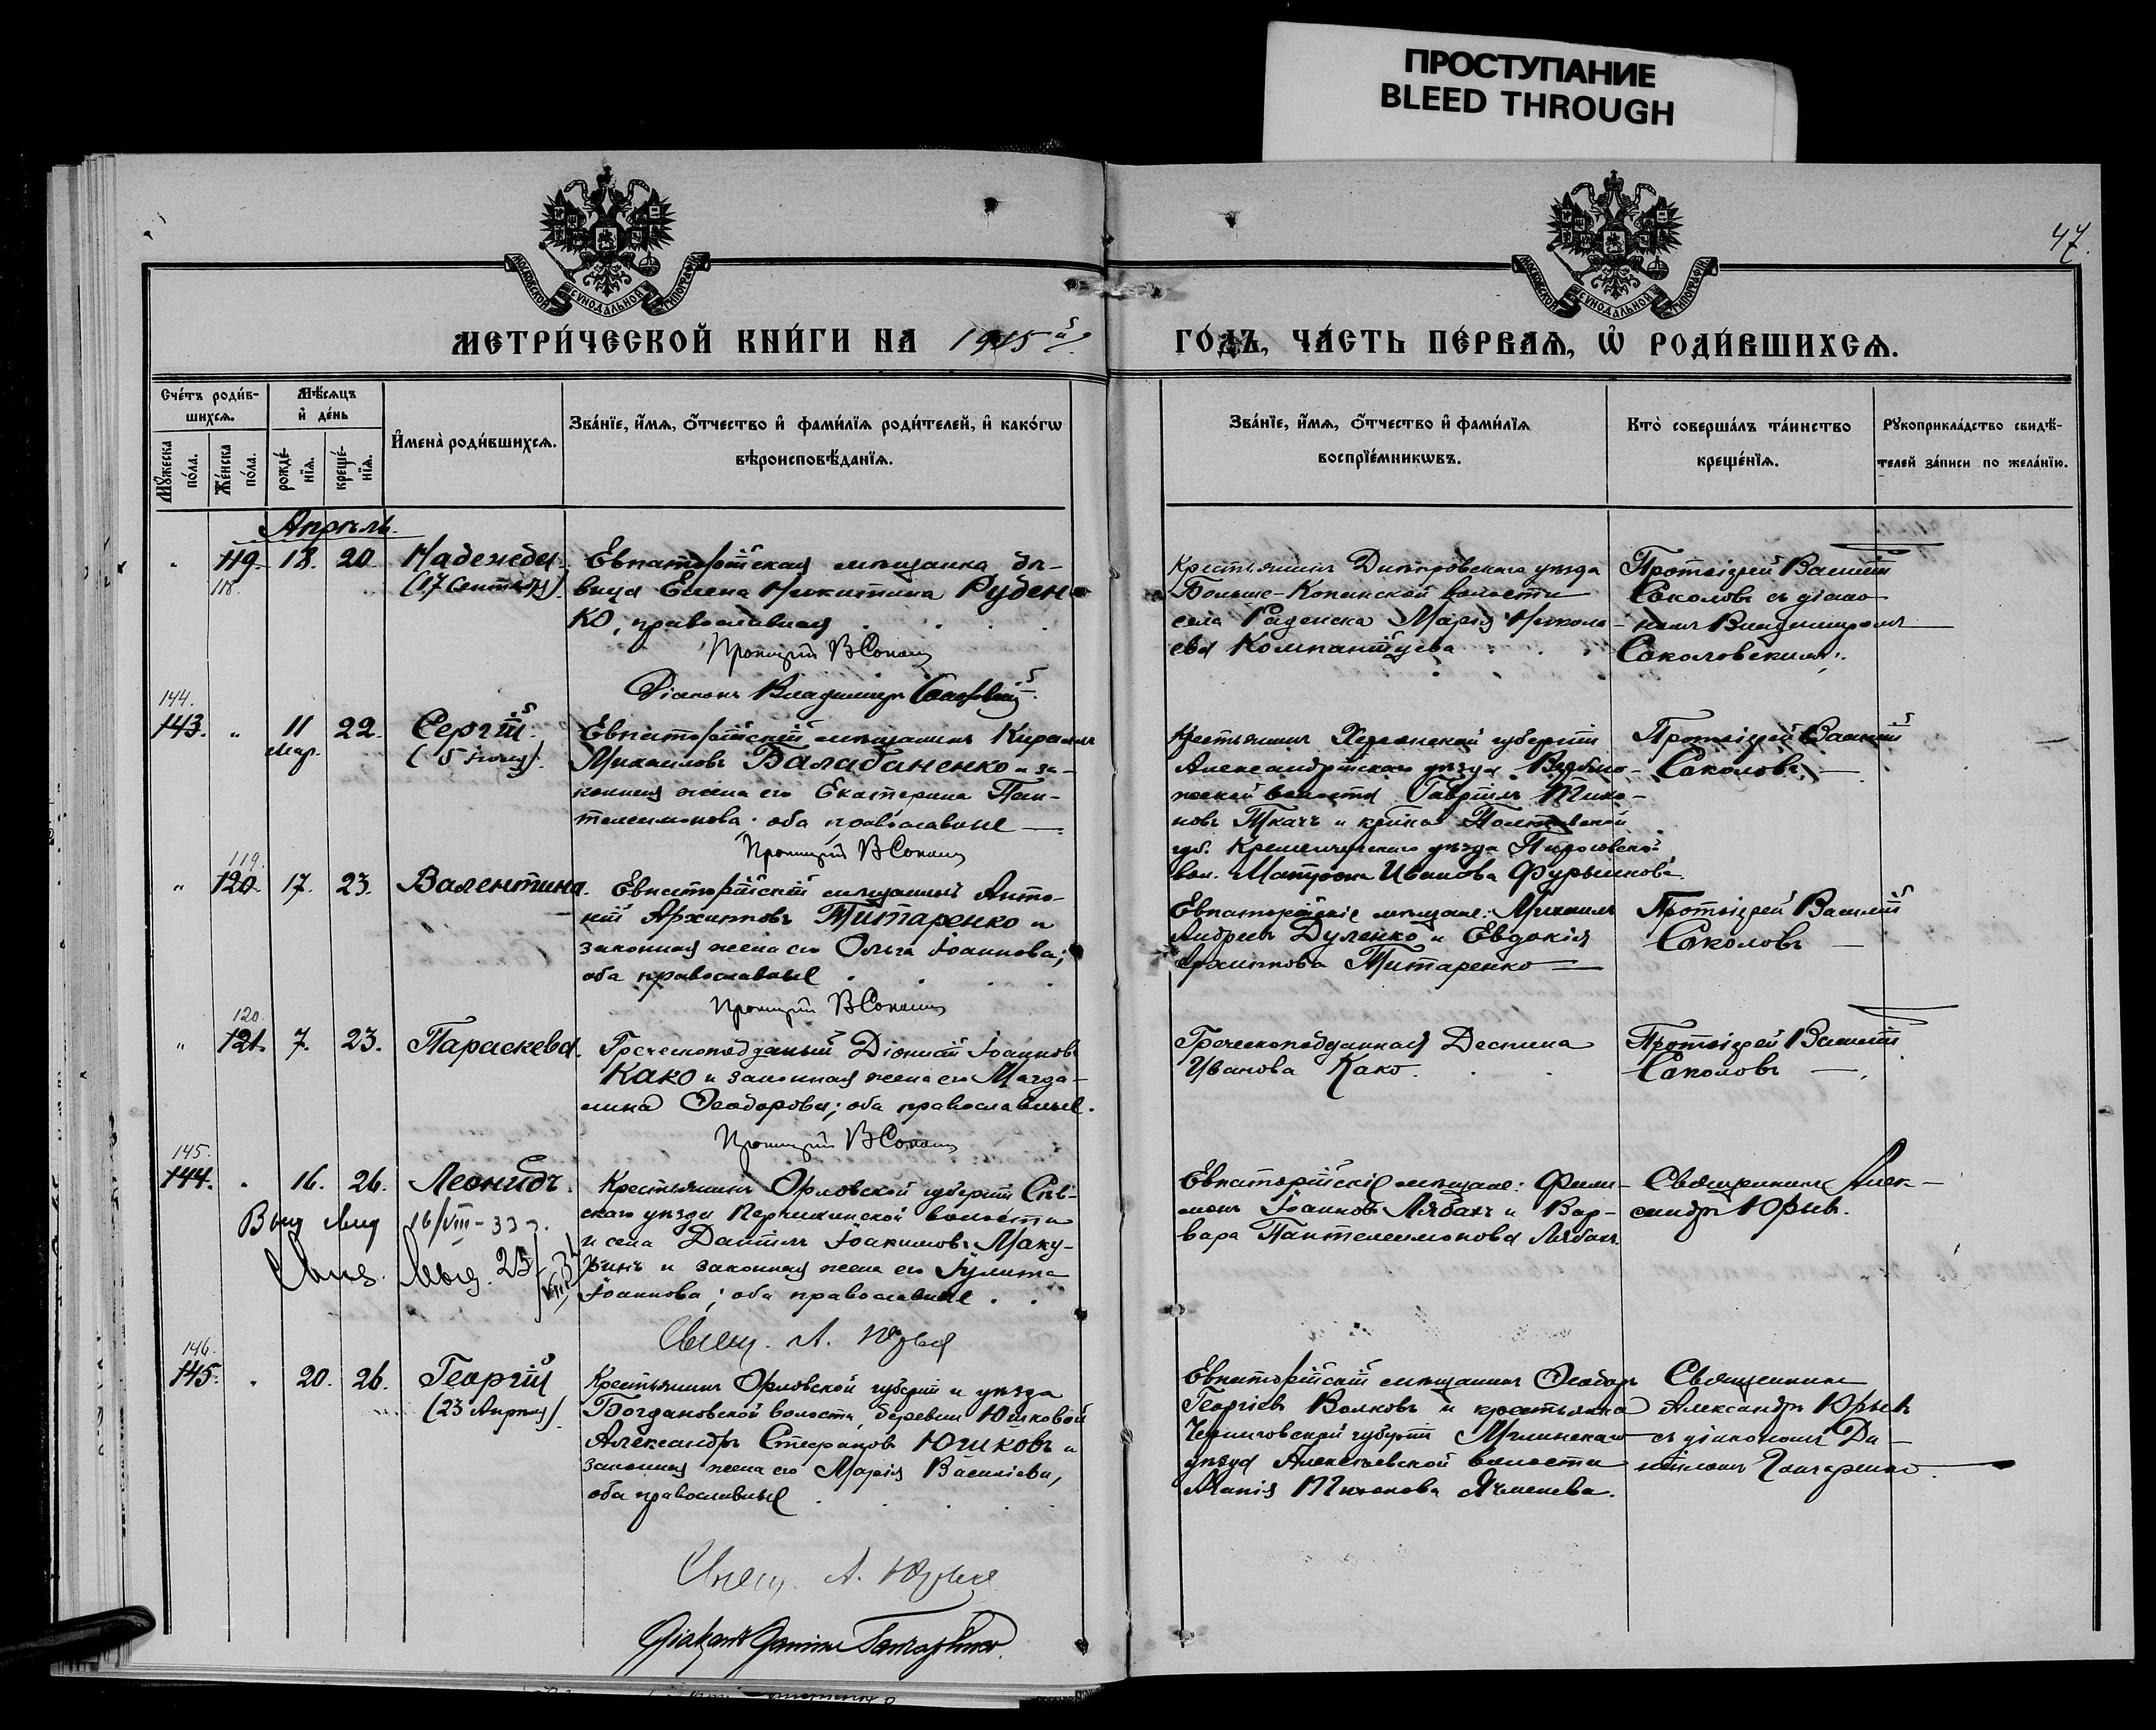 ПРОСТУПАНИЕ
BLEED THROUGH
47.
МОСКОВСКОЙ СУНОДАЛЬНОЙ ТИПОГРАФІИ
МОСКОВСКОЙ СУНОДАЛЬНОЙ ТИПОГРАФІИ
МЕТРИ́ЧЕСКОЙ КНИ́ГИ НА 1915й
ГО́ДЪ, ЧА́СТЬ ПЕ́РВАѦ, Ѡ҆ РОДИ́ВШИХСѦ.
Сче́тъ роди́в-
шихсѧ.
Мѣ́сѧцъ
и҆ де́нь
Мꙋ́жеска по́ла.
Же́нска по́ла.
рожде́-
нїѧ.
креще́-
нїѧ.
И҆мена̀ роди́вшихсѧ.
Зва́нїе, и҆́мѧ, ѻ҆́тчество и҆ фами́лїѧ роди́телей, и҆ како́гѡ
вѣроисповѣ́данїѧ.
Зва́нїе, и҆́мѧ, ѻ҆́тчество и҆ фами́лїѧ
воспрїе́мникѡвъ.
Кто̀ соверша́лъ та́инство
креще́нїѧ.
Рꙋкоприкла́дство свидѣ́-
телей за́писи по жела́нїю.
Апрѣль.
" 119. 18. 20. Надежда.
118.
(17 Сентября).
Евпаторійская мѣщанка дѣ-
вица Елена Никитина Рубен-
ко, православная
Протоіерей В Соколовъ
Діаконъ Владимиръ Соколовскій
Крестьянка Днѣпровскаго уѣзда
Больше-Копанской волости
села Раденска Марія Никола-
ева Компантуева
Протоіерей Василій
Соколовъ съ діако-
номъ Владимиромъ
Соколовскимъ.
144.
143. " 11 22. Сергій.
Мар. (5 іюля).
Евпаторійскій мѣщанинъ Кириллъ
Михаиловъ Балабаненко и за-
конная жена его Екатерина Пан-
телеимонова. оба православные
Протоіерей В Соколовъ
Крестьянинъ Херсонской губерніи
Александрійскаго уѣзда
волости Гавріилъ Тихо-
новъ Ткачъ и кр-ка Полтавской
губ. Кременчугскаго уѣзда
вол. Матрона Иванова
Протоіерей Василій
Соколовъ
119.
" 120. 17. 23. Валентина.
Евпаторійскій мѣщанинъ Анто-
ній Архиповъ Титаренко и
законная жена его Ольга Іоаннова;
оба православные
Протоіерей В Соколовъ
Евпаторійскіе мѣщане: Михаилъ
Андреевъ Дуленко и Евдокія
Архипова Титаренко
Протоіерей Василій
Соколовъ
120.
" 121. 7. 23. Параскева.
Греческоподданый Діонисій Іоанновъ
Како и законная жена его Магда-
лина Ѳеодорова; оба православные.
Протоіерей В Соколовъ
Греческоподданная Деспина
Иванова Како.
Протоіерей Василій
Соколовъ
145.
144. " 16. 26. Леонидъ.
16/VIII-33 г.
Крестьянинъ Орловской губерніи Сѣв-
скаго уѣзда волости
и села Даніилъ Іоакимовъ Маку-
ринъ и законная жена его Іулита
Іоаннова; оба православные.
Свящ. А. Юрьев
Евпаторійскіе мѣщане: Фили-
монъ Іоанновъ Лябахъ и Вар-
вара Пантелеимонова Лябахъ.
Священникъ Алек-
сандръ Юрьев.
146.
145. " 20. 26. Георгій
(23 Апрѣля).
Крестьянинъ Орловской губерніи и уѣзда
Богдановской волости, деревни Юшковой
Александръ Стефановъ Юшковъ и
законная жена его Марія Васильева,
оба православные
Свящ. А. Юрьев
Діаконъ Даніилъ Гончаренко.
Евпаторійскій мѣщанинъ Ѳеодоръ
Георгіевъ Волковъ и крестьянка
Черниговской губерніи Мглинскаго
уѣзда Алексѣевской волости
Тихонова Ячменева.
Священникъ
Александръ Юрьев
съ діакономъ Да-
ніиломъ Гончаренко.